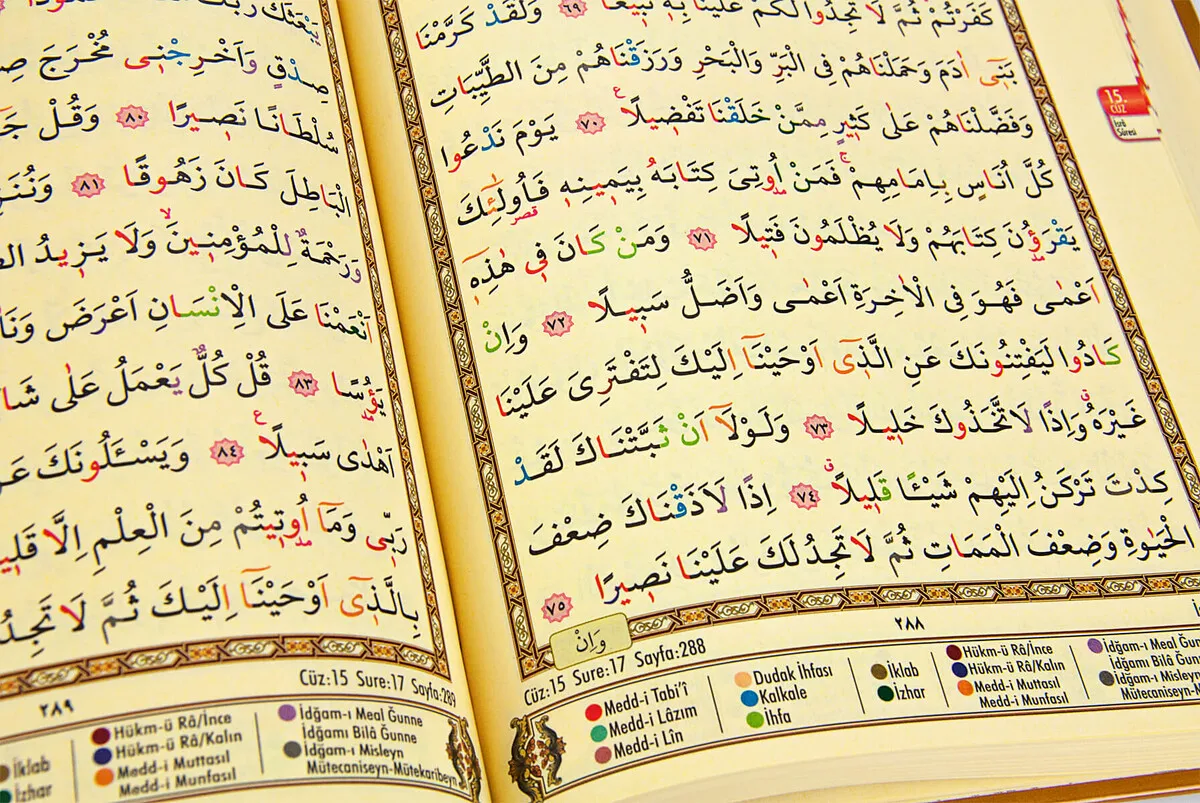 كَفَرْتُمْ ثُمَّ لَا تَجِدُوا لَكُمْ عَلَيْنَا بِه۪ تَب۪يعًا ٦٩ وَلَقَدْ كَرَّمْنَا
بَن۪ٓي اٰدَمَ وَحَمَلْنَاهُمْ فِي الْبَرِّ وَالْبَحْرِ وَرَزَقْنَاهُمْ مِنَ الطَّيِّبَاتِ
وَفَضَّلْنَاهُمْ عَلٰى كَث۪يرٍ مِمَّنْ خَلَقْنَا تَفْض۪يلًا ٧٠ يَوْمَ نَدْعُوا
كُلَّ اُنَاسٍ بِاِمَامِهِمْ فَمَنْ اُو۫تِيَ كِتَابَهُ بِيَم۪ينِه۪ فَاُو۬لٰٓئِكَ
قصر
يَقْرَؤُ۫نَ كِتَابَهُمْ وَلَا يُظْلَمُونَ فَت۪يلًا ٧١ وَمَنْ كَانَ ف۪ي هٰذِه۪ٓ
اَعْمٰى فَهُوَ فِي الْاٰخِرَةِ اَعْمٰى وَاَضَلُّ سَب۪يلًا ٧٢ وَاِنْ
كَادُوا لَيَفْتِنُونَكَ عَنِ الَّذ۪ٓي اَوْحَيْنَٓا اِلَيْكَ لِتَفْتَرِيَ عَلَيْنَا
غَيْرَهُ وَاِذًا لَاتَّخَذُوكَ خَل۪يلًا ٧٣ وَلَوْلَٓا اَنْ ثَبَّتْنَاكَ لَقَدْ
كِدْتَ تَرْكَنُ اِلَيْهِمْ شَيْـًٔا قَل۪يلًا ٧٤ اِذًا لَاَذَقْنَاكَ ضِعْفَ
الْحَيٰوةِ وَضِعْفَ الْمَمَاتِ ثُمَّ لَا تَجِدُ لَكَ عَلَيْنَا نَص۪يرًا ٧٥
وَاِنْ
٢٨٨
15.
CÜZ
İsrâ
Sûresi
Cüz:15 Sure:17 Sayfa:288
Medd-i Tabi'î
Medd-i Lâzım
Medd-i Lîn
Dudak İhfası
Kalkale
İhfa
İklab
İzhar
Hükm-ü Râ/İnce
Hükm-ü Râ/Kalın
Medd-i Muttasıl
Medd-i Munfasıl
İdğam-ı Meal
İdğamı Bilâ
İdğam-ı Misleyn
Mütecaniseyn
يَبْعَثَكَ
صِدْقٍ وَاَخْرِجْن۪ي مُخْرَجَ
سُلْطَانًا نَص۪يرًا ٨٠ وَقُلْ
الْبَاطِلَ كَانَ زَهُوقًا ٨١
وَرَحْمَةٌ لِلْمُؤْمِن۪ينَ وَلَا يَز۪يدُ
اَنْعَمْنَا عَلَى الْاِنْسَانِ اَعْرَضَ
يَؤُ۫سًا ٨٣ قُلْ كُلٌّ يَعْمَلُ عَلٰى
اَهْدٰى سَب۪يلًا ٨٤ وَيَسْـَٔلُونَكَ
رَبّ۪ي وَمَٓا اُو۫ت۪يتُمْ مِنَ الْعِلْمِ اِلَّا
بِالَّذ۪ٓي اَوْحَيْنَٓا اِلَيْكَ ثُمَّ لَا تَجِدُ
٢٨٩
Cüz:15 Sure:17 Sayfa:289
İklab
İzhar
Hükm-ü Râ/İnce
Hükm-ü Râ/Kalın
Medd-i Muttasıl
Medd-i Munfasıl
İdğam-ı Meal Ğunne
İdğamı Bilâ Ğunne
İdğam-ı Misleyn
Mütecaniseyn-Mütekaribeyn